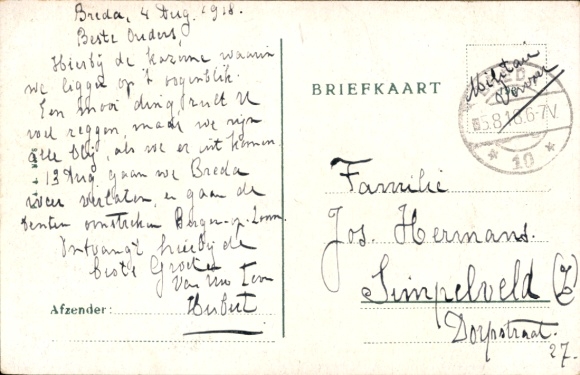 Breda, 4 Aug. 1918.
Beste Ouders,
Hierbij de kazerne waarin
we liggen op 't oogenblik.
Een mooi ding, zult U
wel zeggen, maar we zijn
alle blij, als we er uit komen.
13 Aug gaan we Breda
weer verlaten, en gaan de
tenten omstreken Bergen-op-Zoom.
Ontvangt hierbij de
beste Groeten
van Uw Zoon
Afzender: Hubert
BRIEFKAART
Militair
Vervoer
5.8.18.6-7V.
10
Familie
Jos. Hermans.
Simpelveld (Z)
Dorpstraat.
27.